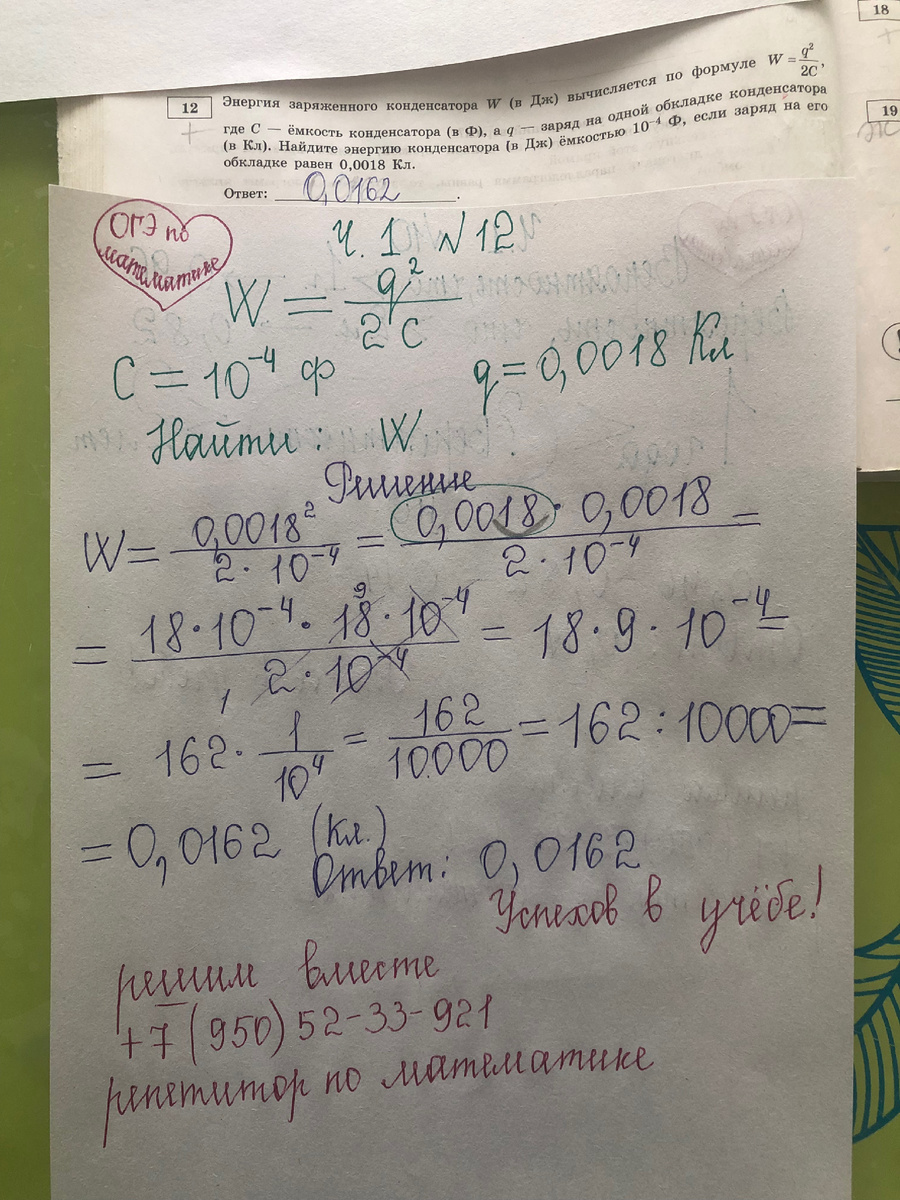 18
19
12
Энергия заряженного конденсатора W (в Дж) вычисляется по формуле W = q²/2C,
где C — ёмкость конденсатора (в Ф), а q — заряд на одной обкладке конденсатора
(в Кл). Найдите энергию конденсатора (в Дж) ёмкостью 10⁻⁴ Ф, если заряд на его
обкладке равен 0,0018 Кл.
Ответ: 0,0162.
ОГЭ по
математике
Ч. 1 N 12
W = q²/2C
C = 10⁻⁴ Ф q = 0,0018 Кл
Найти: W
Решение
W = 0,0018²/2·10⁻⁴ = 0,0018 · 0,0018/2·10⁻⁴ =
= 18·10⁻⁴·18 9·10⁻⁴/1 2·10⁻⁴ = 18·9·10⁻⁴ =
= 162 · 1/10⁴ = 162/10000 = 162 : 10000 =
= 0,0162 (Кл.)
Ответ: 0,0162
Успехов в учёбе!
решим вместе
+7 (950) 52-33-921
репетитор по математике